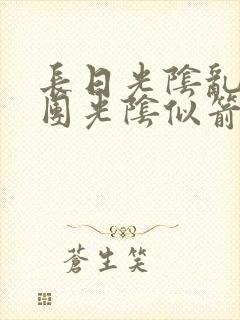 長日光陰亂
團光陰似箭
蒼生笑